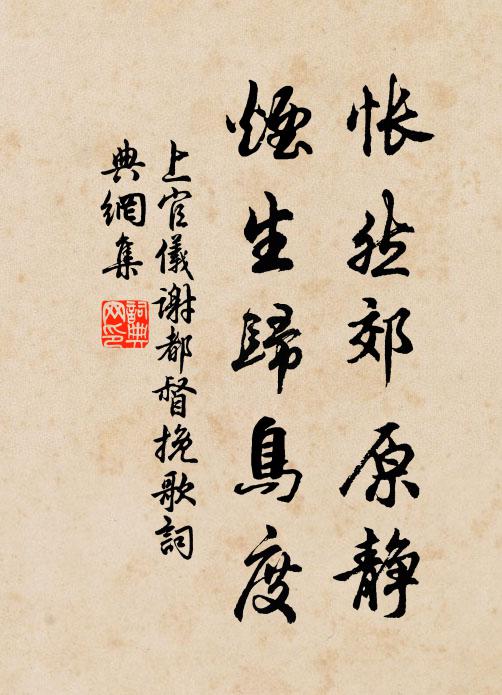 悵然郊原静
煙生歸鳥度
上官儀謝都督挽歌詞
典網集
詞典网印